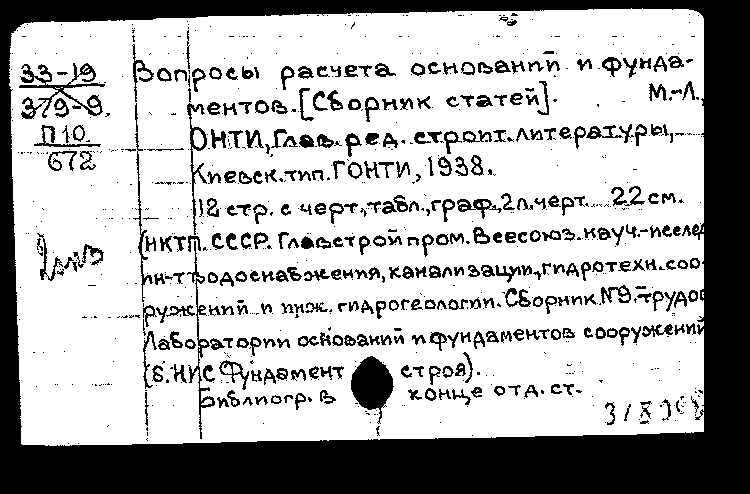 33-19
379-9.
П10.
672
Вопросы расчета оснований и фунда-
ментов. [Сборник статей]. М.-Л.,
ОНТИ, Глав. ред. строит. литературы,
Киевск. тип. ГОНТИ, 1938.
112 стр. с черт., табл., граф., 2 л. черт. 22 см.
(НКТП. СССР. Главстройпром. Всесоюз. науч.-исслед
ин-т водоснабжения, канализации, гидротехн. соо-
ружений и инж. гидрогеологии. Сборник №9. трудов
Лаборатории оснований и фундаментов сооружений
(б. НИС Фундаментстроя).
Библиогр. в конце отд. ст.